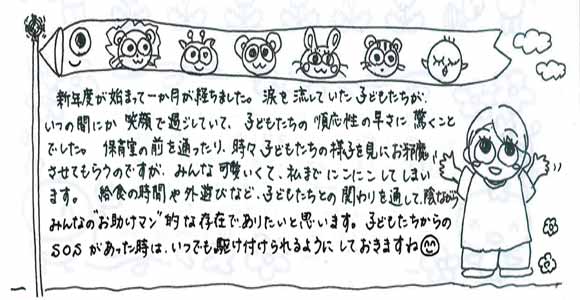 新年度が始まって一か月が経ちました。涙を流していた子どもたちが、
いつの間にか笑顔で過ごしていて、子どもたちの順応性の早さに驚くこと
でした。保育室の前を通ったり、時々子どもたちの様子を見にお邪魔
させてもらうのですが、みんな可愛いくて、私までにこにこしてしまい
ます。給食の時間や外遊びなど、子どもたちとの関わりを通して、陰ながら
みんなの"お助けマン"的な存在でありたいと思います。子どもたちからの
SOSがあった時は、いつでも駆け付けられるようにしておきますね